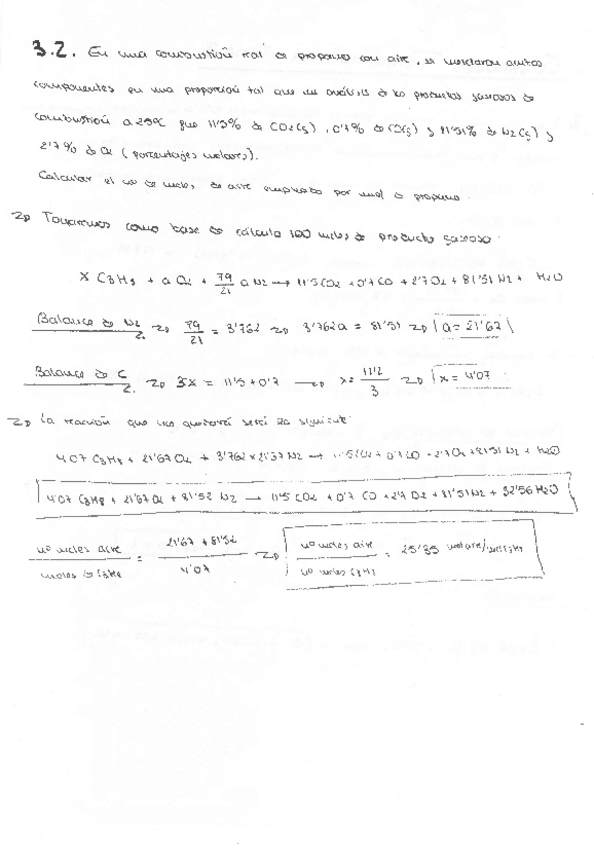 3.2. En una combustión real de propano con aire, se mezclaron ambos
componentes en una proporción tal que un análisis de los productos gaseosos de
combustión a 25ºC que 11'5% de CO2(g), 0'7% de CO(g) y 81'51% de N2(g) y
2'7% de O2 (porcentajes molares).
Calcular el nº de moles de aire empleado por mol de propano.
Tomaremos como base de cálculo 100 moles de producto gaseoso
X C3H8 + a O2 + 79/21 a N2 → 11'5CO2 + 0'7 CO + 2'7O2 + 81'51 N2 + H2O
Balance de N2 79/21 = 3'762 3'762a = 81'51 a = 21'67
Balance de C 3X = 11'5 + 0'7 → x = 12'2/3 x = 4'07
La reacción que nos quedará será la siguiente
4'07 C3H8 + 21'67O2 + 3'762 x 21'37 N2 → 11'5CO2 + 0'7 CO + 2'7O2 + 81'51 N2 + H2O
4'07 C3H8 + 21'67 O2 + 81'52 N2 → 11'5 CO2 + 0'7 CO + 2'7 O2 + 81'51 N2 + 32'56 H2O
nº moles aire / moles de C3H8 = 21'67 + 81'52 / 4'07 nº moles aire / nº moles C3H8 = 25'35 mol aire/mol C3H8